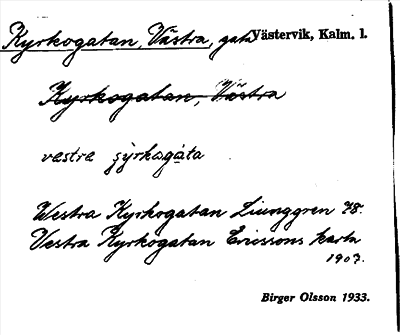 Kyrkogatan, Västra, gata Västervik, Kalm. l.
Kyrkogatan, Västra
vestra çyrkogáta
Westra Kyrkogatan Liunggren 78.
Vestra Kyrkogatan Ericssons karta
1907.
Birger Olsson 1933.